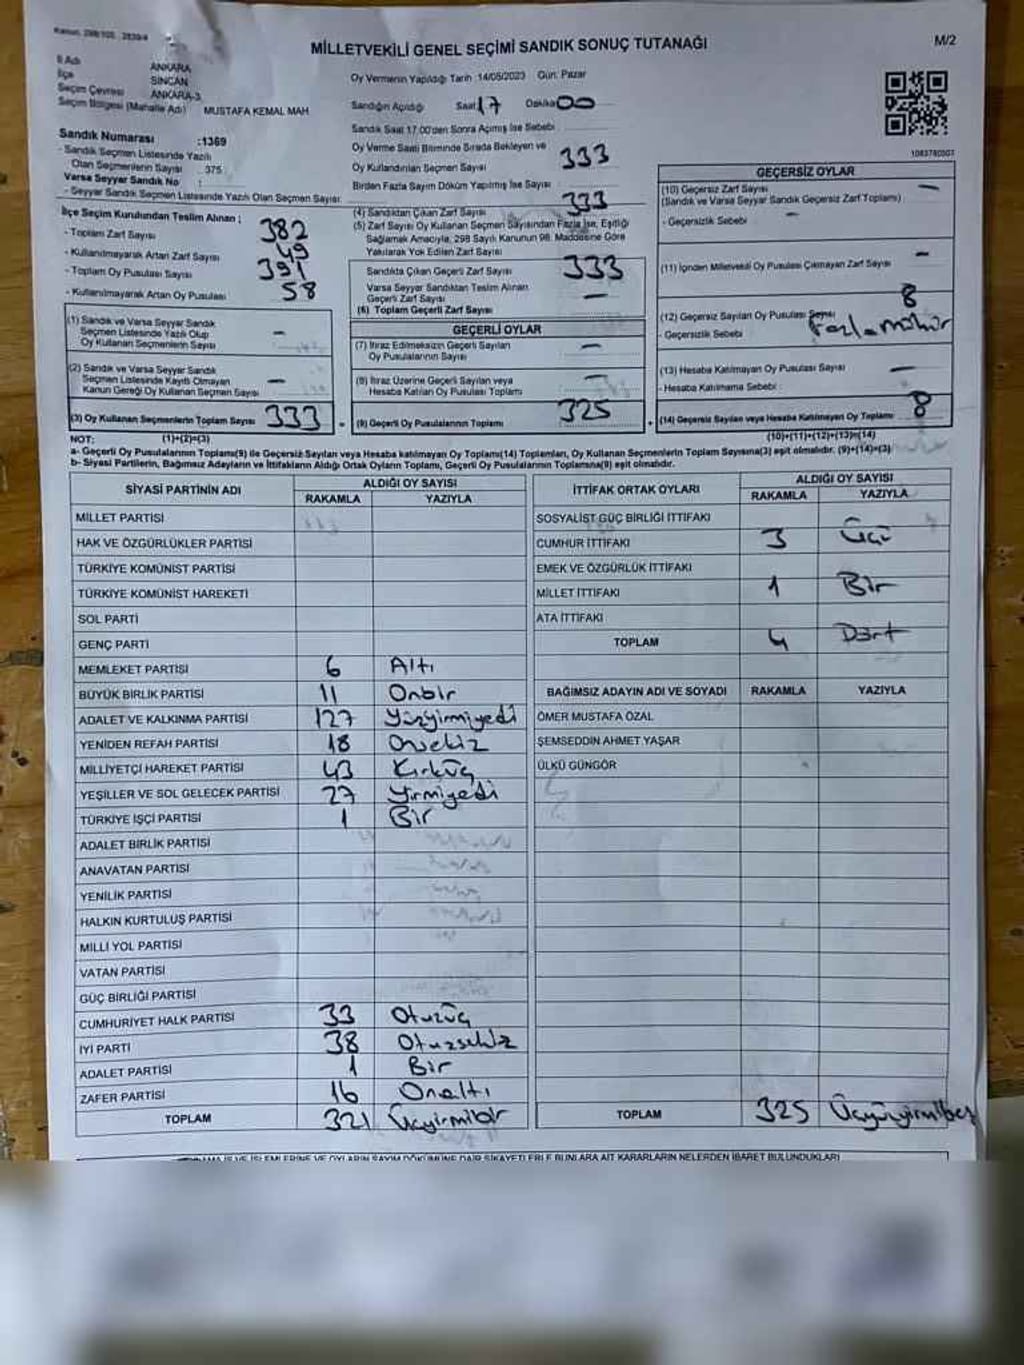 MİLLETVEKİLİ GENEL SEÇİMİ SANDIK SONUÇ TUTANAĞI
M/2
İl Adı ANKARA
İlçe SİNCAN
Seçim Çevresi ANKARA-3
Seçim Bölgesi (Mahalle Adı) MUSTAFA KEMAL MAH
Oy Vermenin Yapıldığı Tarih :14/05/2023 Gün: Pazar
Sandığın Açıldığı Saat 17 Dakika 00
Sandık Saat 17.00'den Sonra Açılmış İse Sebebi
Oy Verme Saati Bitiminde Sırada Bekleyen ve
Oy Kullandırılan Seçmen Sayısı 333
Birden Fazla Sayım Döküm Yapılmış İse Sayısı
Sandık Numarası :1369
- Sandık Seçmen Listesinde Yazılı
Olan Seçmenlerin Sayısı : 375
Varsa Seyyar Sandık No :
- Seyyar Sandık Seçmen Listesinde Yazılı Olan Seçmen Sayısı:
İlçe Seçim Kurulundan Teslim Alınan :
- Toplam Zarf Sayısı 382
- Kullanılmayarak Artan Zarf Sayısı 49
- Toplam Oy Pusulası Sayısı 391
- Kullanılmayarak Artan Oy Pusulası 58
(1) Sandık ve Varsa Seyyar Sandık
Seçmen Listesinde Yazılı Olup
Oy Kullanan Seçmenlerin Sayısı -
(2) Sandık ve Varsa Seyyar Sandık
Seçmen Listesinde Kayıtlı Olmayan
Kanun Gereği Oy Kullanan Seçmen Sayısı -
(3) Oy Kullanan Seçmenlerin Toplam Sayısı 333
(4) Sandıktan Çıkan Zarf Sayısı 333
(5) Zarf Sayısı Oy Kullanan Seçmen Sayısından Fazla İse, Eşitliği
Sağlamak Amacıyla, 298 Sayılı Kanunun 98. Maddesine Göre
Yakılarak Yok Edilen Zarf Sayısı
Sandıkta Çıkan Geçerli Zarf Sayısı 333
Varsa Seyyar Sandıktan Teslim Alınan
Geçerli Zarf Sayısı -
(6) Toplam Geçerli Zarf Sayısı
GEÇERLİ OYLAR
(7) İtiraz Edilmeksizin Geçerli Sayılan
Oy Pusulalarının Sayısı -
(8) İtiraz Üzerine Geçerli Sayılan veya
Hesaba Katılan Oy Pusulası Toplamı -
(9) Geçerli Oy Pusulalarının Toplamı 325
1083780507
GEÇERSİZ OYLAR
(10) Geçersiz Zarf Sayısı -
(Sandık ve Varsa Seyyar Sandık Geçersiz Zarf Toplamı)
- Geçersizlik Sebebi -
(11) İçinden Milletvekili Oy Pusulası Çıkmayan Zarf Sayısı -
(12) Geçersiz Sayılan Oy Pusulası Sayısı 8
- Geçersizlik Sebebi fazla mühür
(13) Hesaba Katılmayan Oy Pusulası Sayısı -
- Hesaba Katılmama Sebebi :
(14) Geçersiz Sayılan veya Hesaba Katılmayan Oy Toplamı 8
NOT: (1)+(2)=(3) (10)+(11)+(12)+(13)=(14)
a- Geçerli Oy Pusulalarının Toplamı(9) ile Geçersiz Sayılan veya Hesaba katılmayan Oy Toplamı(14) Toplamları, Oy Kullanan Seçmenlerin Toplam Sayısına(3) eşit olmalıdır. (9)+(14)=(3)
b- Siyasi Partilerin, Bağımsız Adayların ve İttifakların Aldığı Ortak Oyların Toplamı, Geçerli Oy Pusulalarının Toplamına(9) eşit olmalıdır.
SİYASİ PARTİNİN ADI ALDIĞI OY SAYISI
RAKAMLA YAZIYLA
MİLLET PARTİSİ
HAK VE ÖZGÜRLÜKLER PARTİSİ
TÜRKİYE KOMÜNİST PARTİSİ
TÜRKİYE KOMÜNİST HAREKETİ
SOL PARTİ
GENÇ PARTİ
MEMLEKET PARTİSİ 6 Altı
BÜYÜK BİRLİK PARTİSİ 11 Onbir
ADALET VE KALKINMA PARTİSİ 127 Yüzyirmiyedi
YENİDEN REFAH PARTİSİ 18 Onsekiz
MİLLİYETÇİ HAREKET PARTİSİ 43 Kırküç
YEŞİLLER VE SOL GELECEK PARTİSİ 27 Yirmiyedi
TÜRKİYE İŞÇİ PARTİSİ 1 Bir
ADALET BİRLİK PARTİSİ
ANAVATAN PARTİSİ
YENİLİK PARTİSİ
HALKIN KURTULUŞ PARTİSİ
MİLLİ YOL PARTİSİ
VATAN PARTİSİ
GÜÇ BİRLİĞİ PARTİSİ
CUMHURİYET HALK PARTİSİ 33 Otuzüç
İYİ PARTİ 38 Otuzsekiz
ADALET PARTİSİ 1 Bir
ZAFER PARTİSİ 16 Onaltı
TOPLAM 321 Üçyirmibir
İTTİFAK ORTAK OYLARI ALDIĞI OY SAYISI
RAKAMLA YAZIYLA
SOSYALİST GÜÇ BİRLİĞİ İTTİFAKI
CUMHUR İTTİFAKI 3 Üçü
EMEK VE ÖZGÜRLÜK İTTİFAKI
MİLLET İTTİFAKI 1 Bir
ATA İTTİFAKI
TOPLAM 4 Dört
BAĞIMSIZ ADAYIN ADI VE SOYADI RAKAMLA YAZIYLA
ÖMER MUSTAFA ÖZAL
ŞEMSEDDİN AHMET YAŞAR
ÜLKÜ GÜNGÖR
TOPLAM 325 Üçyüzyirmibeş